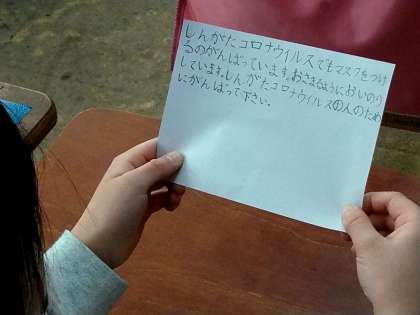 しんがたコロナウイルスでもマスクをつけ
るのがんばっています。おさまるようにおいのり
しています。しんがたコロナウイルスの人のため
にがんばって下さい。